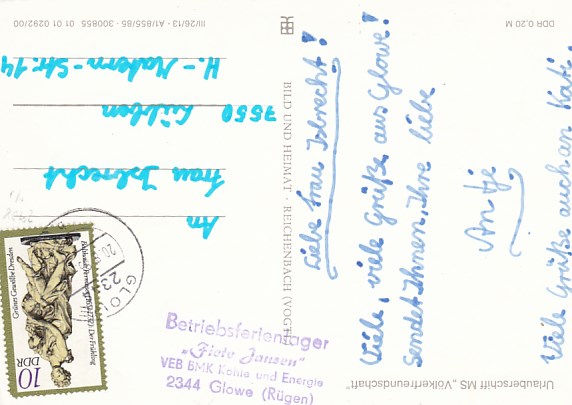 Liebe Frau Isbrecht!
Viele, viele Grüße aus Glowe!
sendet Ihnen, Ihre liebe
Antje
Viele Grüße auch an Kati.
An
Frau Isbrecht
7550 Lübben
H.-Matern-Str. 14
Betriebsferienlager
„Fiete Jansen"
VEB BMK Kohle und Energie
2344 Glowe (Rügen)
Urlauberschiff MS „Völkerfreundschaft"
BILD UND HEIMAT · REICHENBACH (VOGTL)
III/26/13 · A1/855/85 · 300855 01 01 0292/00
DDR 0,20 M
Grünes Gewölbe Dresden
Der Frühling
DDR
10
GLO
20.
23